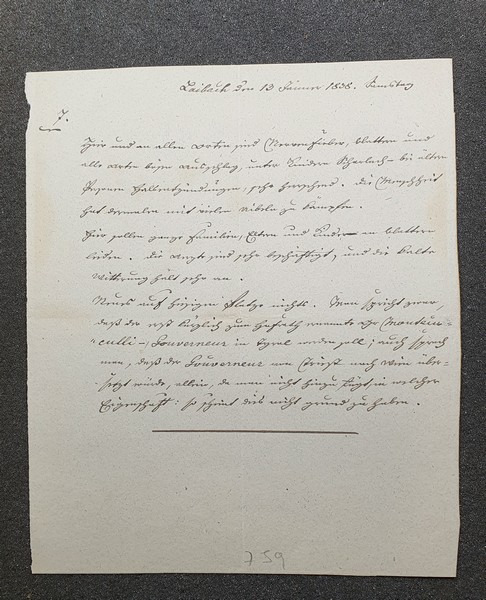 Laibach den 13 Jänner 1838. Samstag
7.
Hier und an allen Orten sind Nervenfieber, Blattern und
alle Arten bösen Ausschlag, unter Kindern Scharlach- bei ältern
Personen Halsentzündungen, sehr herschend. Die Menschheit
hat dermalen mit vielen Übeln zu kämpfen.
Hier sollen ganze Familien, Eltern und Kinder an Blattern
leiden. Die Ärzte sind sehr beschäftigt, und die kalte
Witterung hält sehr an.
Neues auf hiesigem Platze nichts. Man spricht zwar,
daß der erst kürzlich zum Hofrath ernannte Montecu-
culli- Gouverneur in Tyrol werden soll; auch sprach
man, daß der Gouverneur von Triest nach Wien über-
setzt würde, allein, da man nicht hinzu fügt, in welcher
Eigenschaft: so scheint dies nicht Grund zu haben.
759